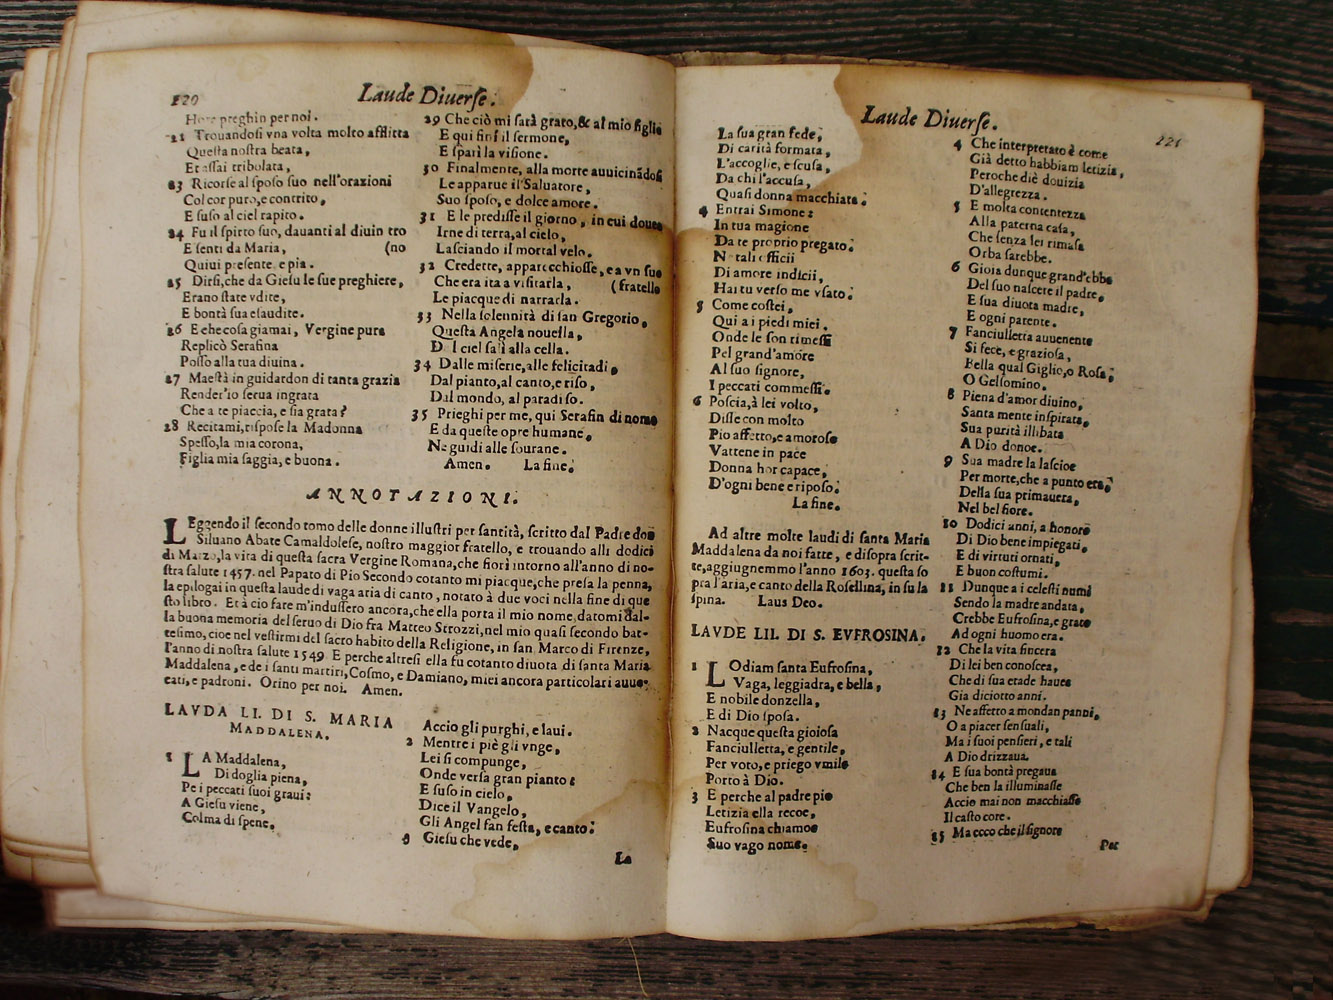 120
Laude Diuerſe.
preghin per noi.
Trouandoſi vna volta molto afflitta
Queſta noſtra beata,
Et aſſai tribolata,
83 Ricorſe al ſpoſo ſuo nell'orazioni
Col cor puro, e contrito,
E ſuſo al ciel rapito.
84 Fu il ſpirto ſuo, dauanti al diuin tro
E ſenti da Maria, (no
Quiui preſente e pia.
85 Dirſi, che da Gieſu le ſue preghiere,
Erano ſtate vdite,
E bontà ſua eſaudite.
26 E che coſa giamai, Vergine pura
Replicò Serafina
Poſſo alla tua diuina.
87 Maeſtà in guidardon di tanta grazia
Render'io ſerua ingrata
Che a te piaccia, e ſia grata?
28 Recitami, riſpoſe la Madonna
Speſſo, la mia corona,
Figlia mia ſaggia, e buona.
29 Che ciò mi ſarà grato, & al mio figlio
E qui finì il ſermone,
E ſpari la viſione.
30 Finalmente, alla morte auuicinãdoſi
Le apparue il Saluatore,
Suo ſpoſo, e dolce amore.
31 E le prediſſe il giorno, in cui douea
Irne di terra, al cielo,
Laſciando il mortal velo.
32 Credette, apparecchioſſe, e a vn ſuo
Che era ita a viſitarla, (fratello
Le piacque di narrarla.
33 Nella ſolennità di ſan Gregorio,
Queſta Angela nouella,
Del ciel ſalì alla cella.
34 Dalle miſerie, alle felicitadi,
Dal pianto, al canto, e riſo,
Dal mondo, al paradiſo.
35 Prieghi per me, qui Serafin di nome
E da queſte opre humane,
Ne guidi alle ſourane.
Amen. La fine.
ANNOTAZIONI.
LEggendo il ſecondo tomo delle donne illuſtri per ſantità, ſcritto dal Padre don
Siluano Abate Camaldoleſe, noſtro maggior fratello, e trouando alli dodici
di Marzo, la vita di queſta ſacra Vergine Romana, che fiorì intorno all'anno di no-
ſtra ſalute 1457. nel Papato di Pio Secondo cotanto mi piacque, che preſa la penna,
la epilogai in queſta laude di vaga aria di canto, notato à due voci nella fine di que
ſto libro. Et à cio fare m'induſſero ancora, che ella porta il mio nome, datomi dal-
la buona memoria del ſeruo di Dio fra Matteo Strozzi, nel mio quaſi ſecondo bat-
teſimo, cioe nel veſtirmi del ſacro habito della Religione, in ſan Marco di Firenze,
l'anno di noſtra ſalute 1549. E perche altreſi ella fu cotanto diuota di ſanta Maria
Maddalena, e de i ſanti martiri, Coſmo, e Damiano, miei ancora particolari auuo-
cati, e padroni. Orino per noi. Amen.
LAVDA LI. DI S. MARIA
MADDALENA.
1 LA Maddalena,
Di doglia piena,
Pe i peccati ſuoi graui:
A Gieſu viene,
Colma di ſpene,
Accio gli purghi, e laui.
2 Mentre i piè gli vnge,
Lei ſi compunge,
Onde verſa gran pianto:
E ſuſo in cielo,
Dice il Vangelo,
Gli Angel fan feſta, e canto:
3 Gieſu che vede,
La
Laude Diuerſe.
221
La ſua gran fede,
Di carità formata,
L'accoglie, e ſcuſa,
Da chi l'accuſa,
Quaſi donna macchiata.
4 Entrai Simone:
In tua magione
Da te proprio pregato:
N tali officii
Di amore indicii,
Hai tu verſo me vſato:
5 Come coſtei,
Qui a i piedi miei.
Onde le ſon rimeſſi
Pel grand'amore
Al ſuo ſignore,
I peccati commeſſi.
6 Poſcia, à lei volto,
Diſſe con molto
Pio affetto, e amoroſo
Vattene in pace
Donna hor capace,
D'ogni bene e ripoſo.
La fine.
Ad altre molte laudi di ſanta Maria
Maddalena da noi fatte, e diſopra ſcrit-
te, aggiugnemmo l'anno 1603. queſta ſo
pra l'aria, e canto della Roſellina, in ſu la
ſpina. Laus Deo.
LAVDE LII. DI S. EVFROSINA.
1 LOdiam ſanta Eufroſina,
Vaga, leggiadra, e bella,
E nobile donzella,
E di Dio ſpoſa.
2 Nacque queſta gioioſa
Fanciulletta, e gentile,
Per voto, e priego vmile
Porto à Dio.
3 E perche al padre pio
Letizia ella recoe,
Eufroſina chiamoe
Suo vago nome.
4 Che interpretato è come
Già detto habbiam letizia,
Peroche diè douizia
D'allegrezza.
5 E molta contentezza
Alla paterna caſa,
Che ſenza lei rimaſa
Orba ſarebbe.
6 Gioia dunque grand'ebbe
Del ſuo naſcere il padre,
E ſua diuota madre,
E ogni parente.
7 Fanciulletta auuenente
Si fece, e grazioſa,
Bella qual Giglio, o Roſa,
O Gelſomino.
8 Piena d'amor diuino,
Santa mente inſpirata,
Sua purità illibata
A Dio donoe.
9 Sua madre la laſcioe
Per morte, che a punto era,
Della ſua primauera,
Nel bel fiore.
10 Dodici anni, a honore
Di Dio bene impiegati,
E di virtuti ornati,
E buon coſtumi.
11 Dunque a i celeſti numi
Sendo la madre andata,
Crebbe Eufroſina, e grata
Ad ogni huomo era.
12 Che la vita ſincera
Di lei ben conoſcea,
Che di ſua etade hauea
Gia diciotto anni.
13 Ne affetto a mondan panni,
O a piacer ſenſuali,
Ma i ſuoi penſieri, e tali
A Dio drizzaua.
14 E ſua bontà pregaua
Che ben la illuminaſſe
Accio mai non macchiaſſe
Il caſto core.
15 Ma ecco che il ſignore
Per